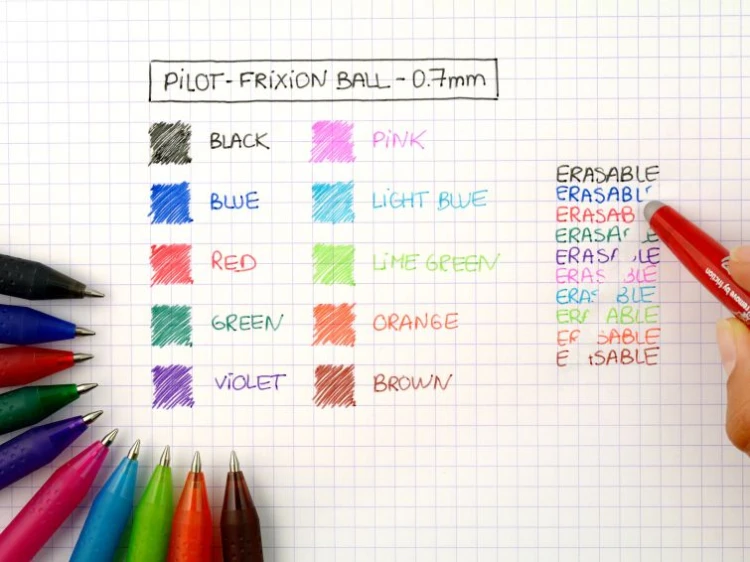 PiLOT-FRiXiON BALL - 0.7mm
BLACK
BLUE
RED
GREEN
ViOLET
PiNK
LiGHT BLUE
LiME GREEN
ORANGE
BROWN
ERASABLE
ERASABL
ERASAB
ERASA E
ERAS LE
ERAS BLE
ERA BLE
ER ABLE
E SABLE
E SABLE
remove by friction